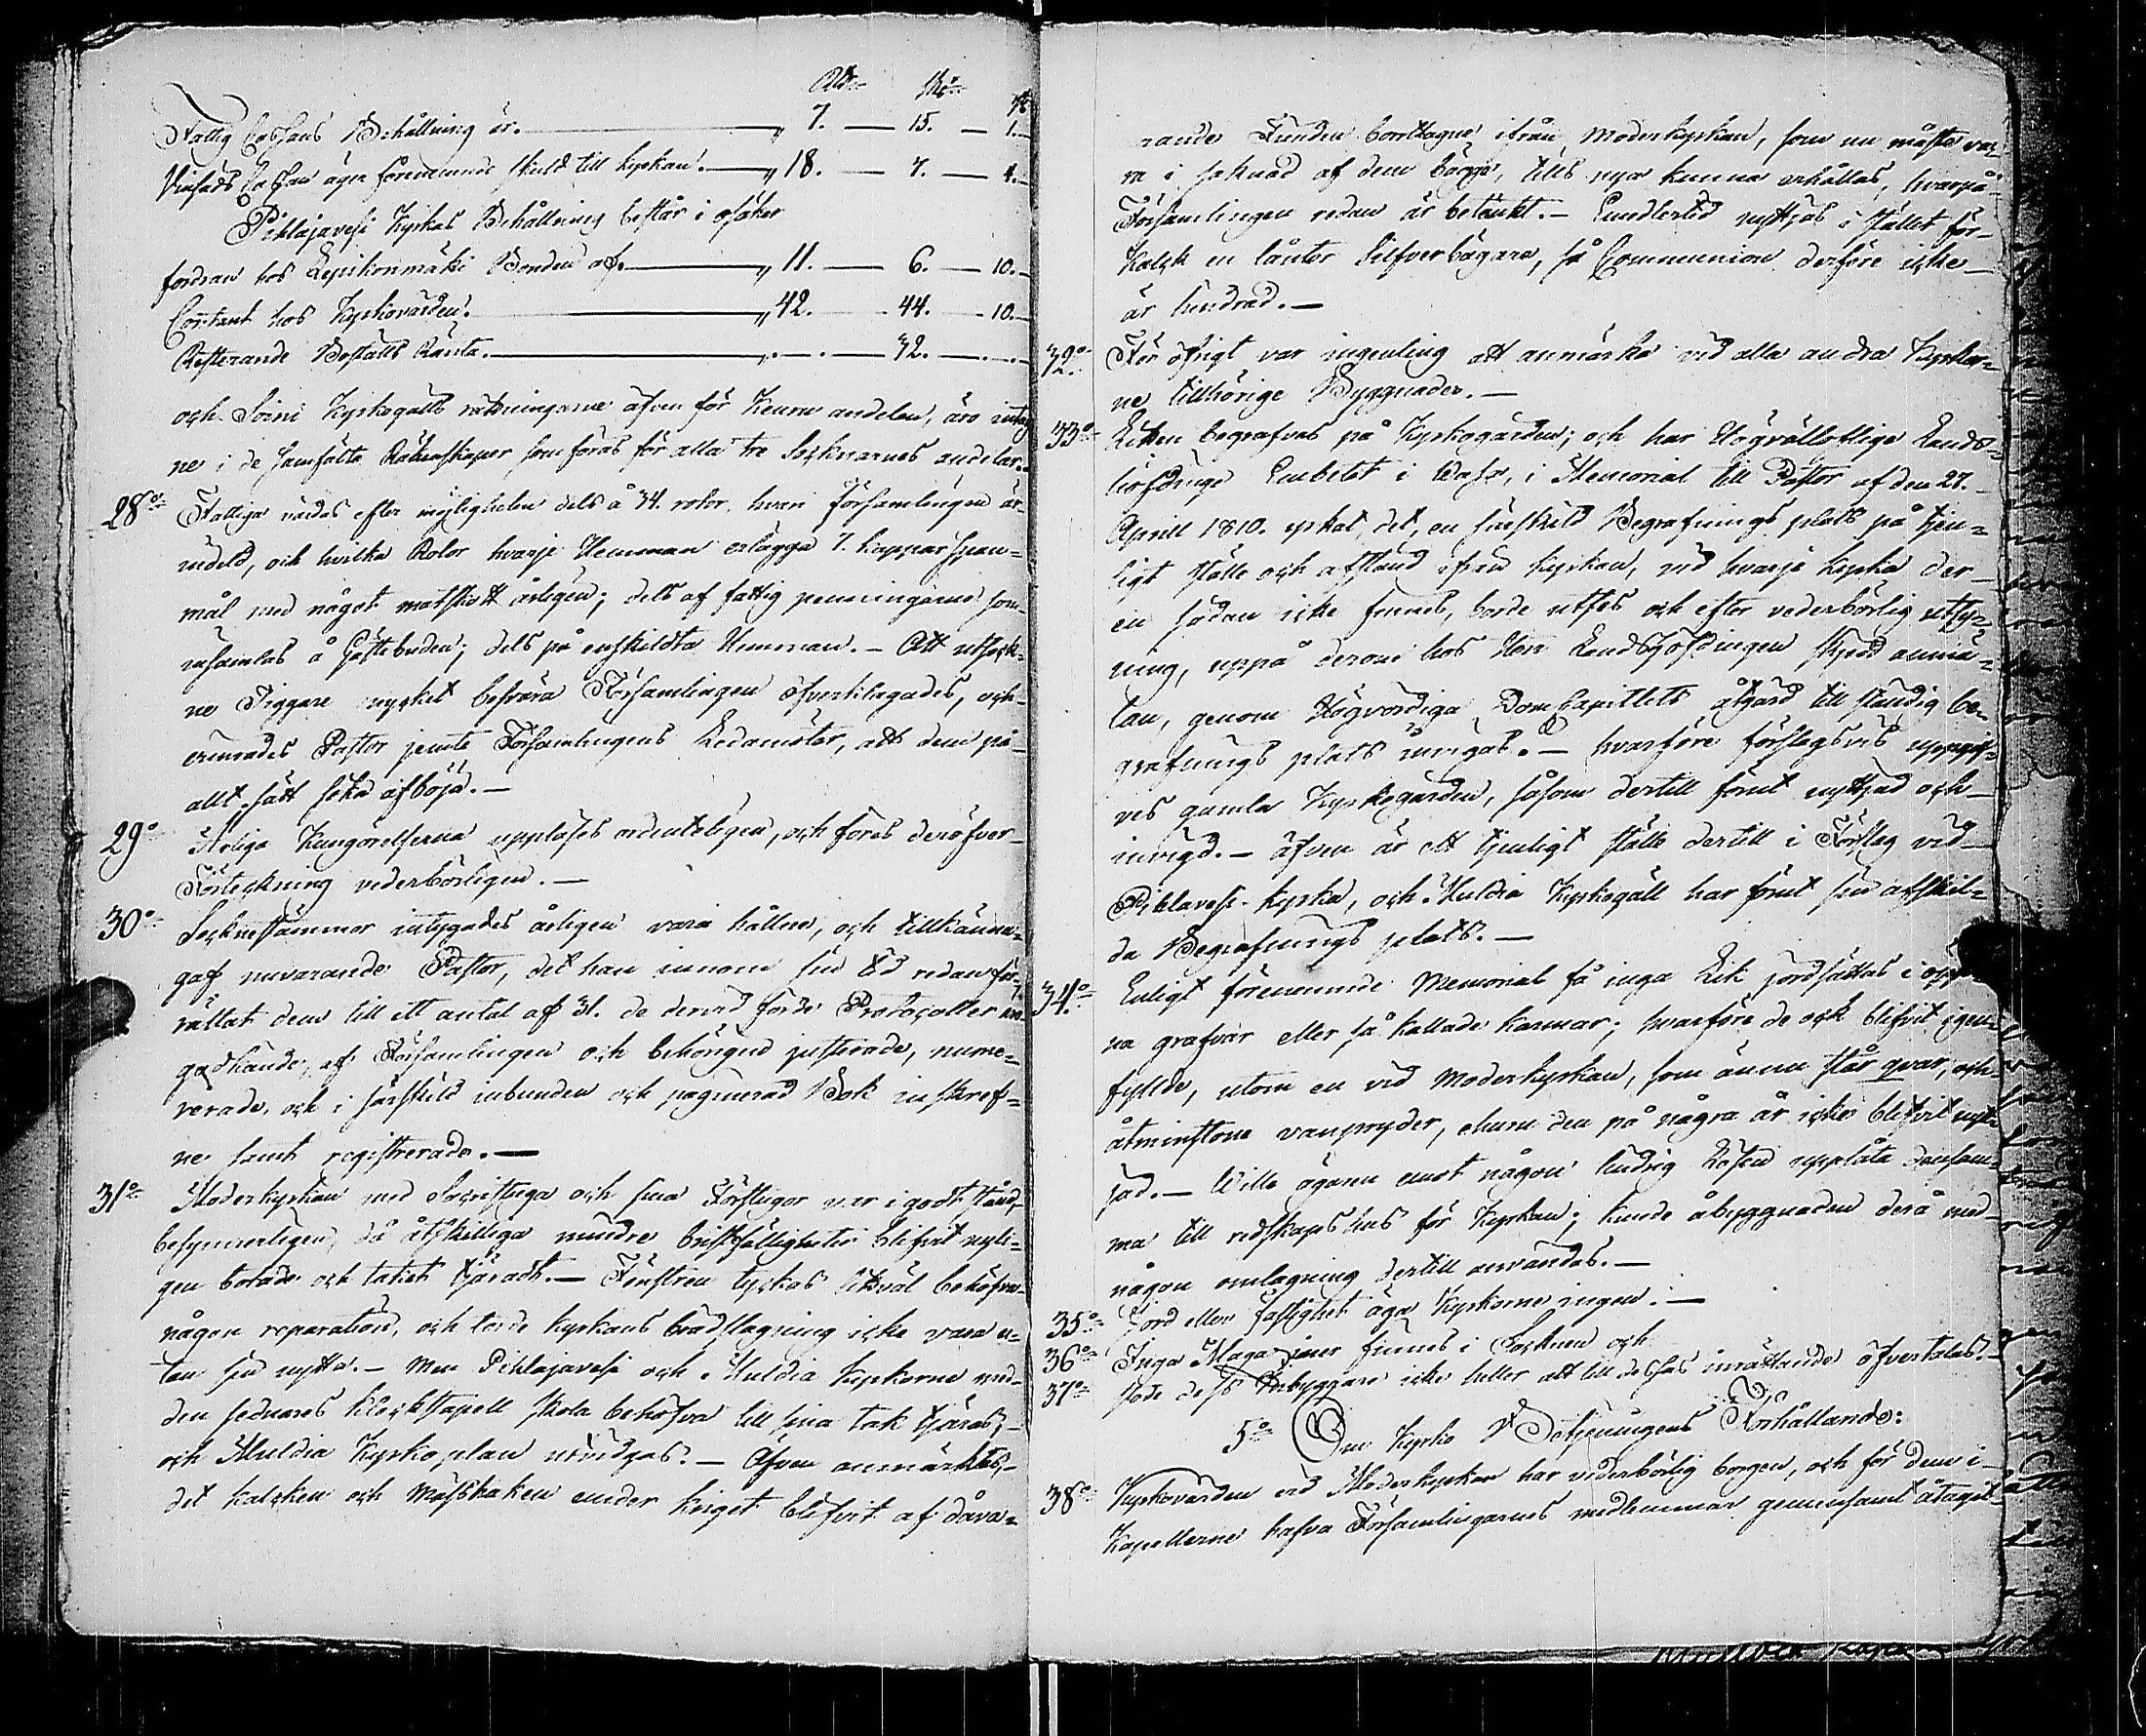 Rd:r sk: r:
Fattig Cassans Behållning är. — " 7. — 15. — 1.
Vinsäds Cassan äger förenämnde skuld till kyrkan. — " 18. — 7. — 4.
Pihlajavesi Kyrkas Behållning består i osäker
fordran hos Lepikonmäki Bonden af. — " 11. — 6. — 10.
Contant hos Kyrkovärden. — " 42. — 44. — 10.
Resterande Boställs Ränta. — " . — 32. — .
och Soini Kyrkogälls räkningarne äfven för Keuru andelen, äro intag
ne i de samfälta Räkenskaper som föras för alla tre Socknarnes andelar.
28:o Fattiga vårdas efter möjligheten dels å 34. rotor, hvari Församlingen är
indeld, och hvilka Rotor hvarje Hemman erlägga 7. kappar span=
mål med något matskott årligen; dels af fattig penningarne som
insamlas å Gästebuden; dels på enskildta Hemman. — Att utsock-
ne Tiggare mycket besvära Församlingen öfverklagades, och
ermrades Pastor jemte Församlingens Ledamöter, att dem på
allt sätt söka afböja. —
29:o Årliga Kungörelserna uppläses ordenteligen, och föres deröfver
Förteckning vederbörligen. —
30:o Sockenstämmor intygades årligen vara hållne, och tillkänna=
gaf nuvarande Pastor, det han innom sin tid redan för-
rättat dem till ett antal af 31. de dervid förde Protocoller äro
godkände, af Församlingen och behörigen justerade, nume=
rerade, och i särskild inbunden och paginerad Bok inskref=
ne samt registrerade. —
31:o Moderkyrkan med Sacristiga och sina Förstugor var i godt stånd,
besynnerligen, då åtskilliga mindre bristfälligheter blifvit nyli=
gen botade och taket tjäradt. — Fönstren tyckas likväl behöfva
någon reparation, och torde Kyrkans brädslagning icke vara u=
tan sin nytta. — Men Pihlajavesi och Multia Kyrkorne med
den sednares klockstapell skola behöfva till sina tak tjäras,
och Multia Kyrkoplan utvidgas. — Äfven anmärktes,
det kalken och Mässhaken under kriget blifvit af dåva=
rande Fienden borttagne ifrån Moderkyrkan, som nu måste va=
ra i saknad af dem bägge, tills nya kunna erhållas, hvarpå
Församlingen redan är betänkt. — Emedlertid nyttjas i stället för
Kalck en lånter Silfverbägare, så Communion derföre icke
är hindrad. —
32:o För öfrigt var ingenting att anmärka vid alla andra Kyrkor=
ne tillhörige Byggnader. —
33:o Liken begrafvas på Kyrkogården; och har Högvällofliga Lands=
höfdinge Embetet i Wasa, i Memorial till Pastor af den 27.
Aprill 1810. yrkat, det, en särskild Begrafnings plats på tjen=
ligt ställe och afstånd ifrån Kyrkan, vid hvarje kyrka der
en sådan icke finnes, borde utses och efter vederbörlig utsy=
ning, uppå derom hos Herr Landshöfdingen skjedd anmä=
lan, genom Högvördiga DomCapittlets åtgärd till ständig be=
grafnings plats invigas. — hvarföre förslagsvis uppgif=
ves gamla Kyrkogården, såsom dertill förut nyttjad och
invigd. — äfven är ett tjenligt ställe dertill i Förslag vid
Pihlavesi kyrka, och Multia Kyrkogäll har förut sin afskil=
da Begrafnings plats. —
34:o Enligt förenämnde Memorial få inga Lik jordsättas i öpp
na grafvar eller så kallade kamar; hvarföre de ock blifvit igen=
fyllde, utom en vid Moderkyrkan, som ännu står qvar, och
åtminstone vanpryder, ehuru den på några år icke blifvit nytt=
jad. — Wille ägaren emot någon lindrig Lösen upplåta densam=
ma till redskaps hus för Kyrkan; kunde åbyggnaden derå med
någon omlagning dertill användas. —
35:o Jord eller fastighet äga Kyrkorne ingen. —
36:o Inga Magaziner finnas i Socknen och
37:o stode dess Inbyggare icke heller att till dessas inrättande öfvertalas. —
5:o Om Kyrko Betjeningens Förhållande:
38:o Kyrkovärden vid Moderkyrkan har vederbörlig borgen, och för dem i
Kapellerne hafva Församlingarnes medlemmar gemensamt åtagit